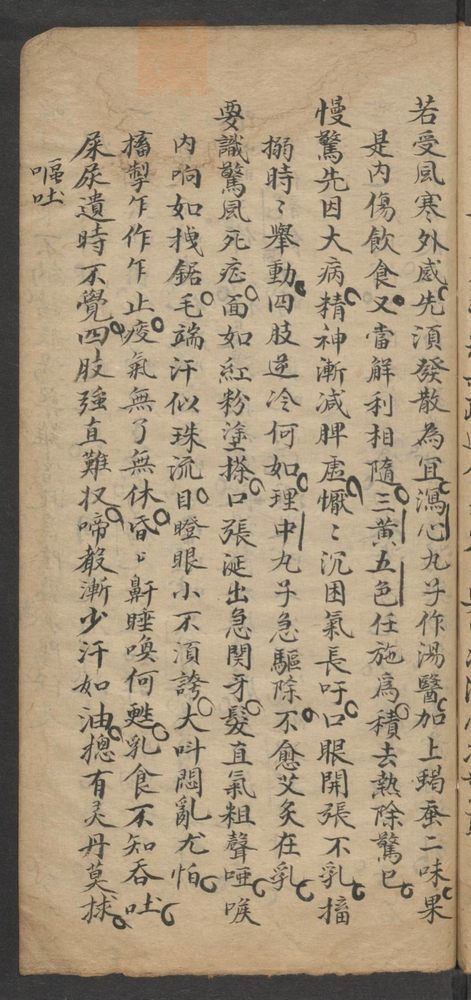 若受風寒外感先須發散為宜瀉心九子作湯醫加上蝎蚕二味果
是内傷飲食又當解利相隨三黄五色任施為積去熱除驚已
慢驚先因大病精神漸減脾虛懨〻沉困氣長吁口眼開張不乳搐
搦時〻舉動四肢逆冷何如理中九子急驅除不愈艾灸在乳
要識驚風死症面如紅粉塗搽口張涎出急関牙髮直氣粗聲唖喉
内响如拽鋸毛端汗似珠流目瞪眼小不須誇大叫悶亂尤怕
搐掣乍作乍止痰氣無了無休昏〻鼾睡喚何甦乳食不知吞吐
屎尿遺時不覺四肢強直難扠啼聲漸少汗如油摠有灵丹莫捄
嘔吐